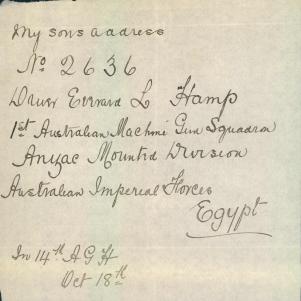 My sons address
No 2636
Driver Everard L Hamp
1st Australian Machine Gun Squadron
Anzac Mounted Division
Australian Imperial Forces
Egypt
In 14th A G H
Oct 18th